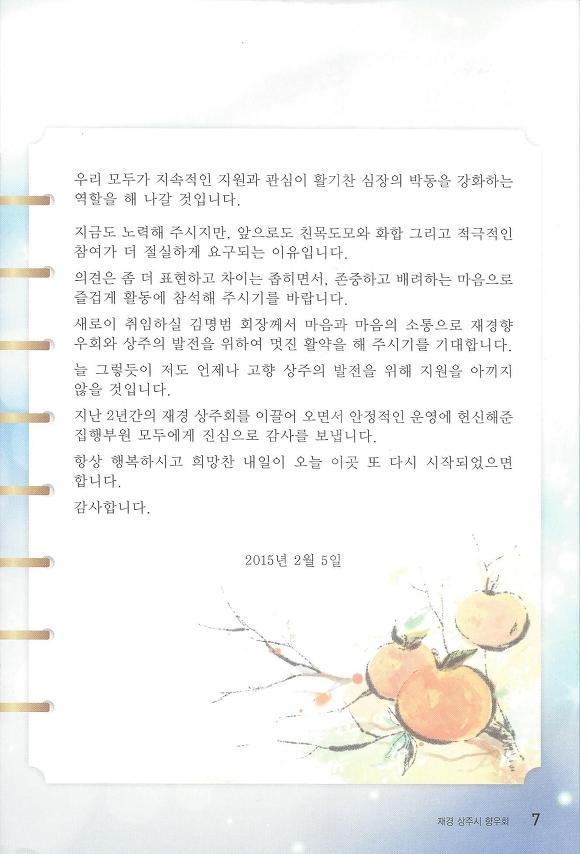 우리 모두가 지속적인 지원과 관심이 활기찬 심장의 박동을 강화하는
역할을 해 나갈 것입니다.
지금도 노력해 주시지만, 앞으로도 친목도모와 화합 그리고 적극적인
참여가 더 절실하게 요구되는 이유입니다.
의견은 좀 더 표현하고 차이는 좁히면서, 존중하고 배려하는 마음으로
즐겁게 활동에 참석해 주시기를 바랍니다.
새로이 취임하실 김명범 회장께서 마음과 마음의 소통으로 재경향
우회와 상주의 발전을 위하여 멋진 활약을 해 주시기를 기대합니다.
늘 그렇듯이 저도 언제나 고향 상주의 발전을 위해 지원을 아끼지
않을 것입니다.
지난 2년간의 재경 상주회를 이끌어 오면서 안정적인 운영에 헌신해준
집행부원 모두에게 진심으로 감사를 보냅니다.
항상 행복하시고 희망찬 내일이 오늘 이곳 또 다시 시작되었으면
합니다.
감사합니다.
2015년 2월 5일
재경 상주시 향우회 7